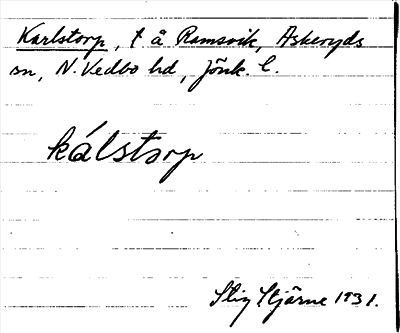 Karlstorp, t å Ramsvik, Askeryds
sn, N. Vedbo hd, Jönk. l.
kálstorp
Stig Stjärne 1931.